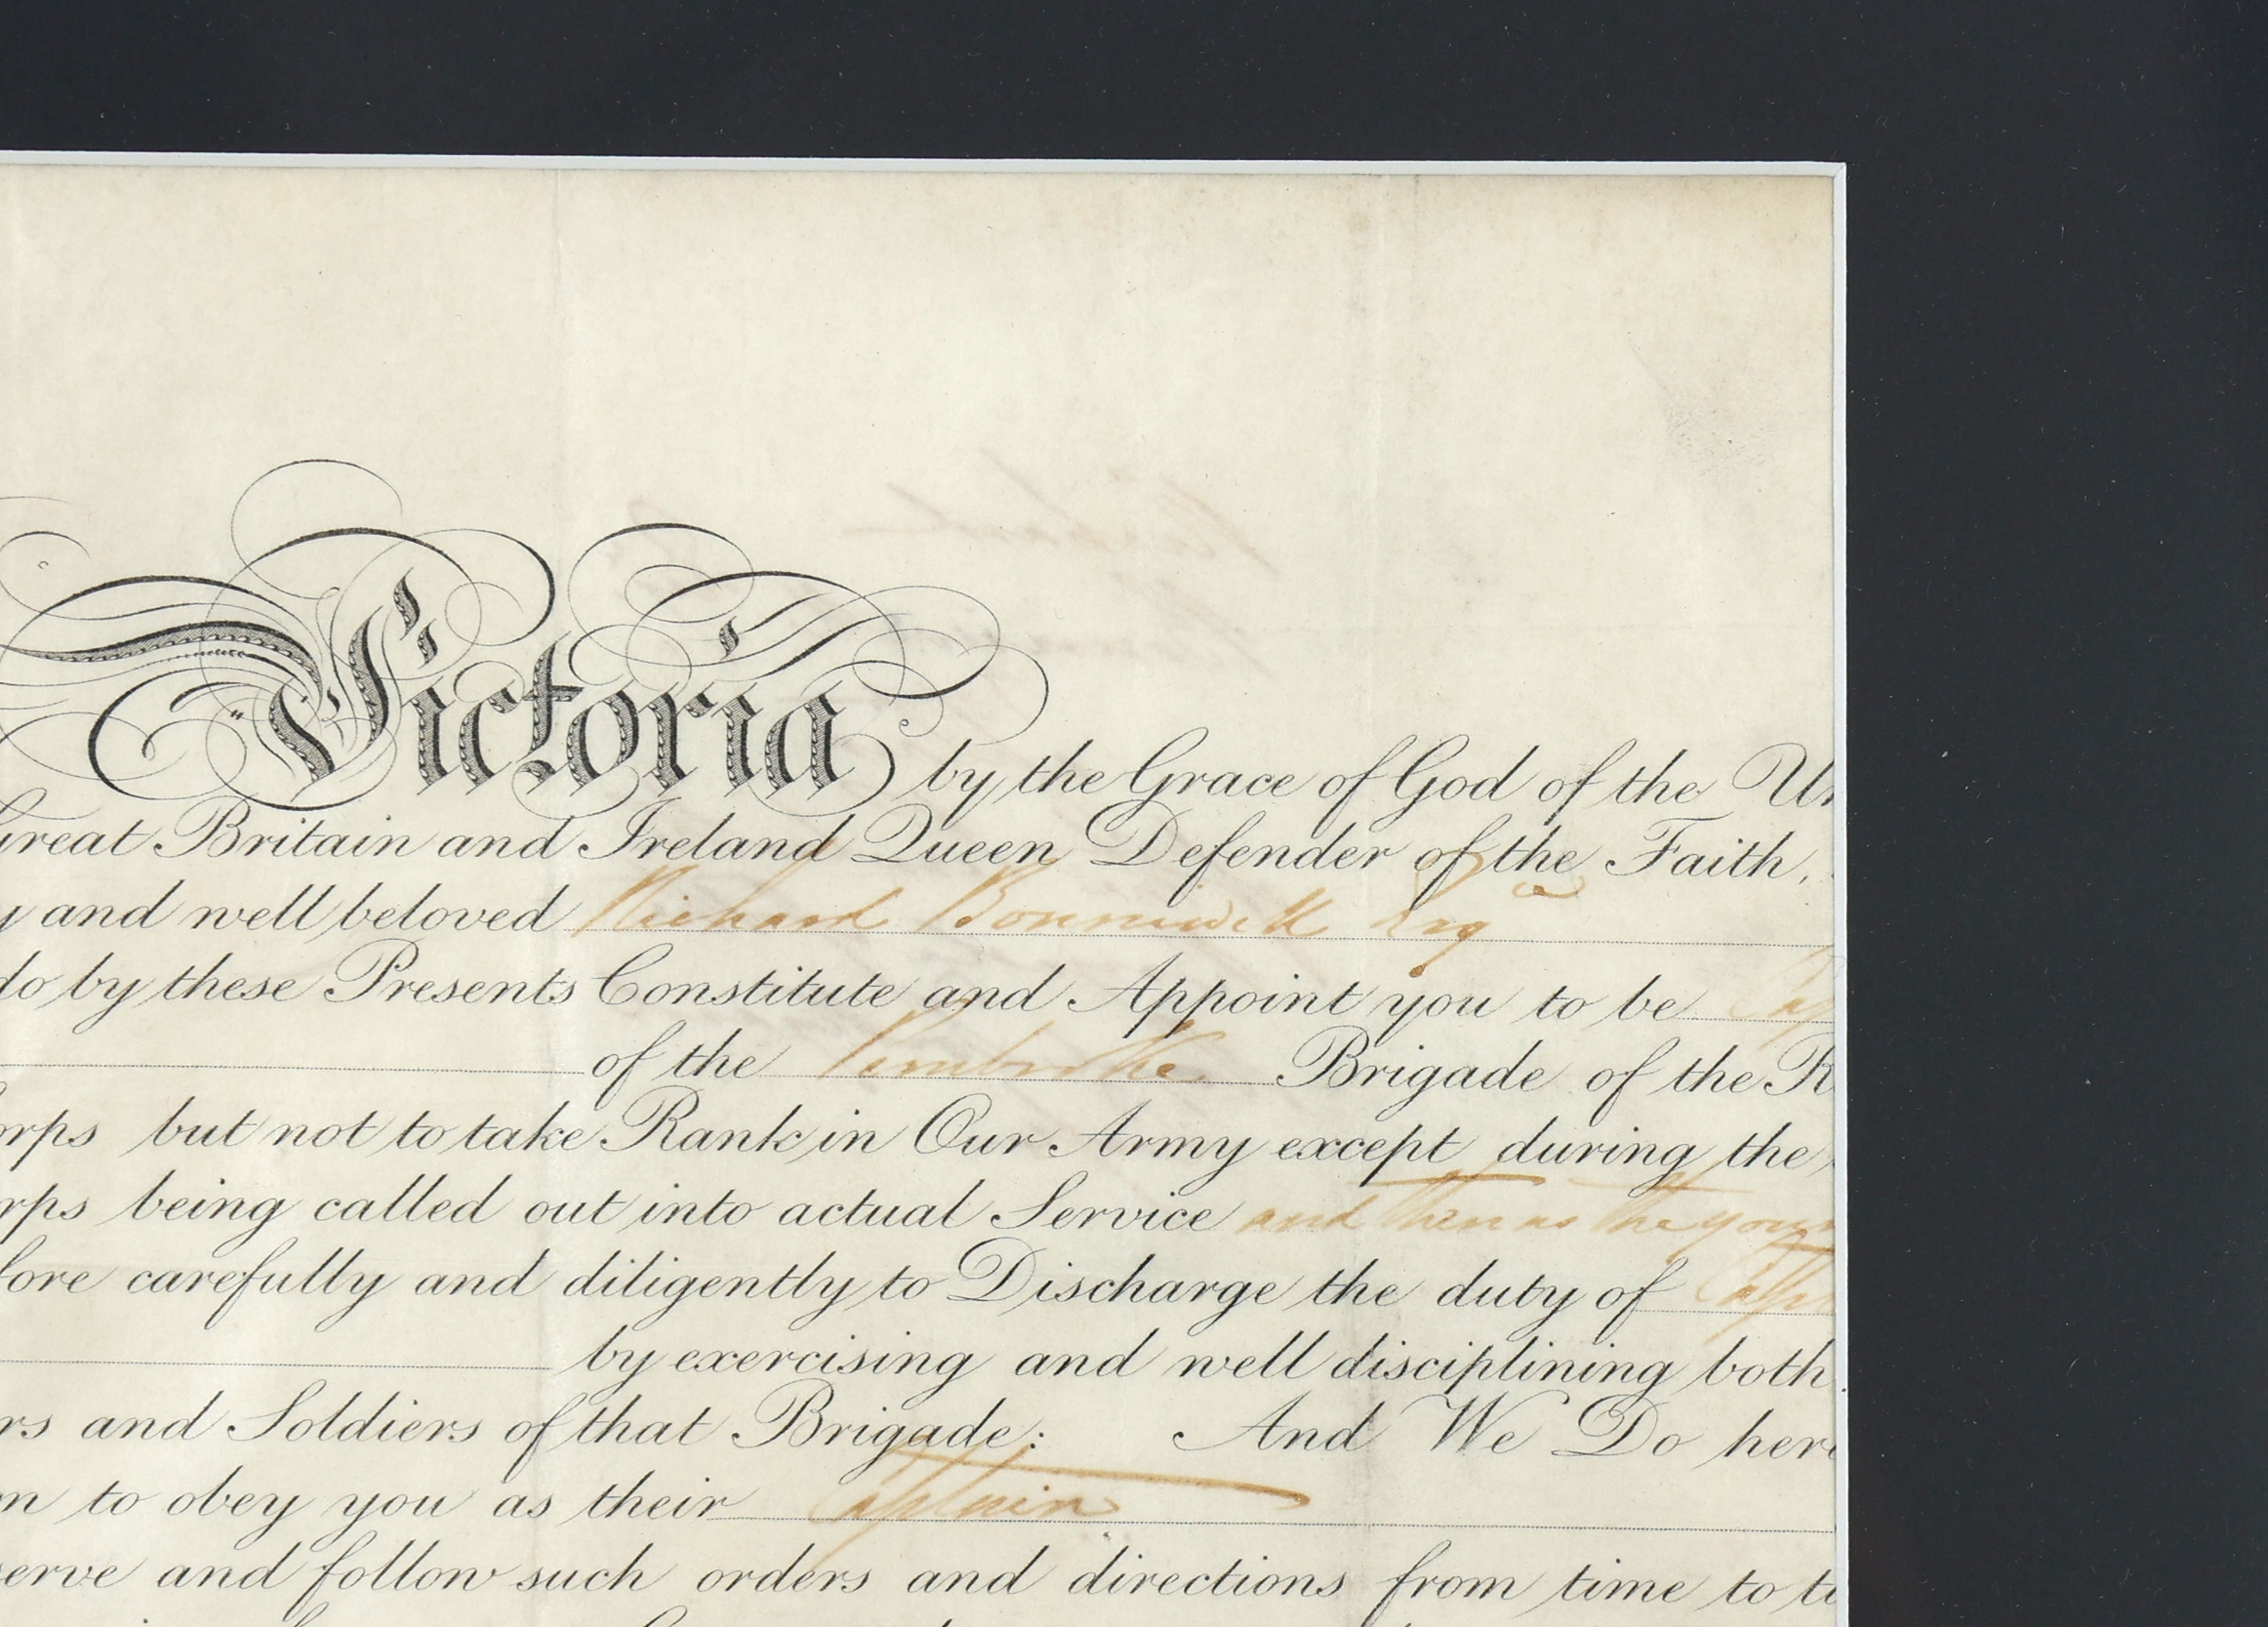 Victoria by the Grace of God of the Un
Great Britain and Ireland Queen Defender of the Faith,
y and well beloved Richard Bonniwell Esqre
do by these Presents Constitute and Appoint you to be Cap
of the Pembroke Brigade of the R
orps but not to take Rank in Our Army except during the
rps being called out into actual Service and then as the youn
fore carefully and diligently to Discharge the duty of Capt
by exercising and well disciplining both
rs and Soldiers of that Brigade: And We Do here
m to obey you as their Captain
serve and follow such orders and directions from time to ti